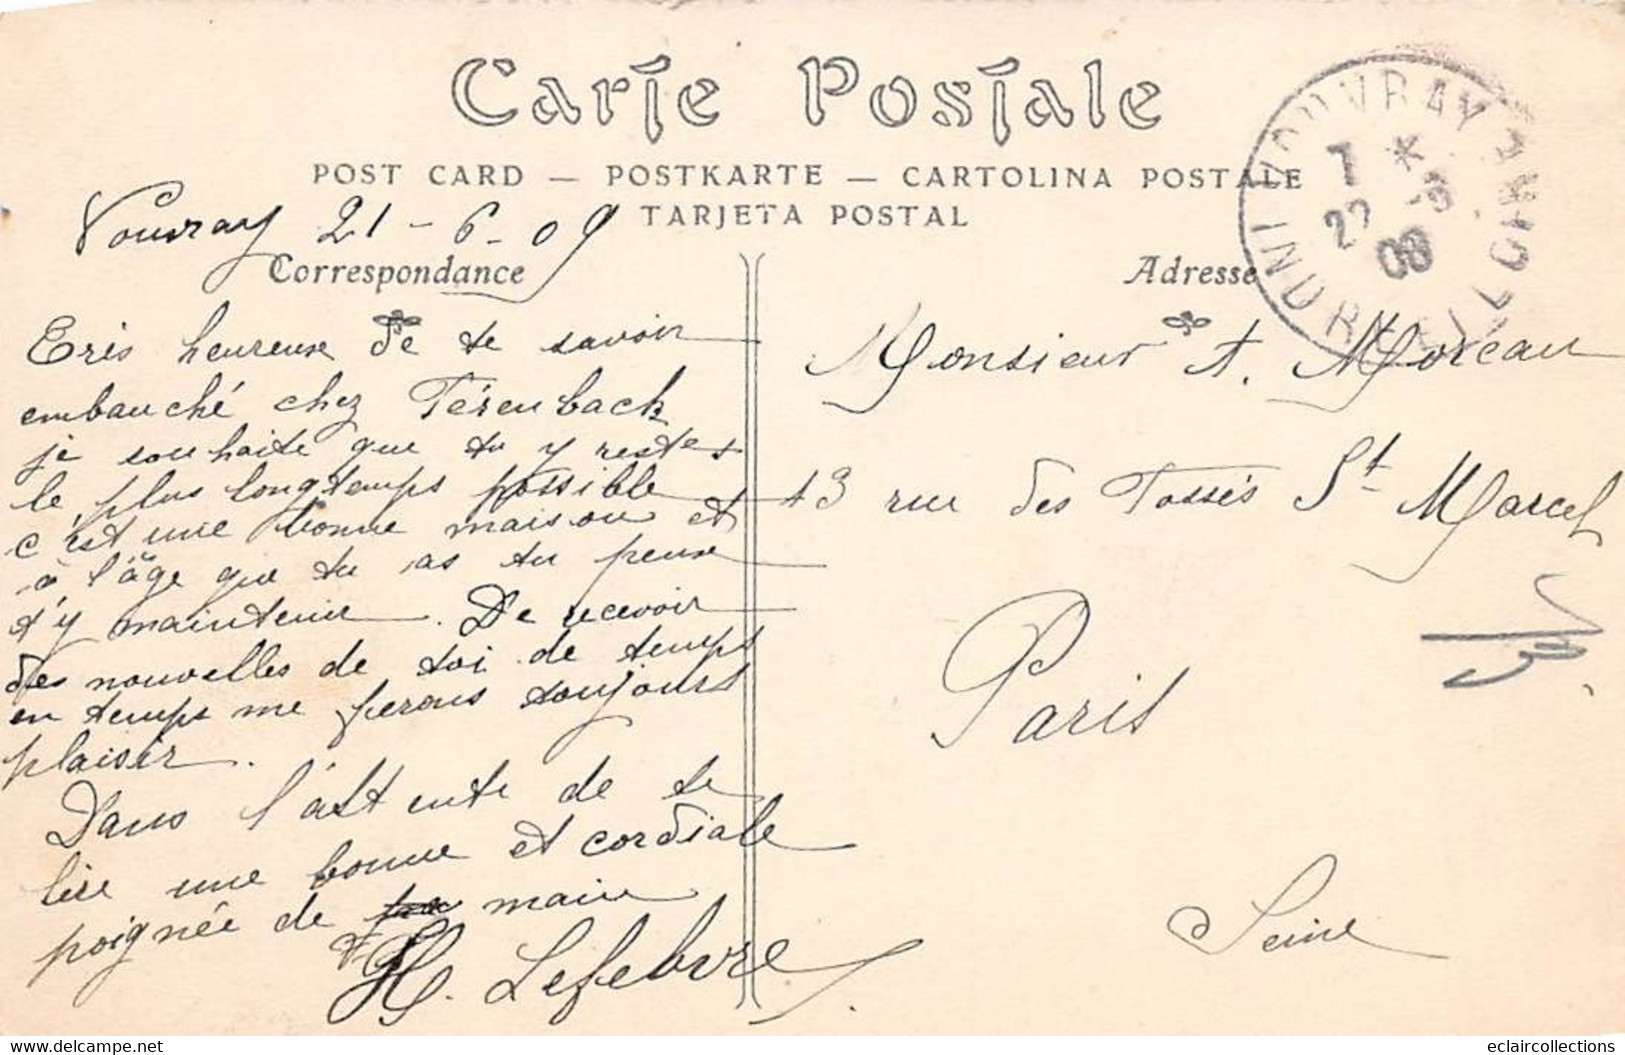 Carte Postale
POST CARD — POSTKARTE — CARTOLINA POSTALE
TARJETA POSTAL
Vouvray 21-6-09
Correspondance
Eris heureuse de te savoir
embauché chez Férenback
je souhaite que tu y restes
le plus longtemps possible
c'est une bonne maison et
à l'âge que tu as tu peux
t'y maintenir. De recevoir
des nouvelles de toi de temps
en temps me ferons toujours
plaisir.
Dans l'attente de te
lire une bonne et cordiale
poignée de main
H. Lefebvre
VOUVRAY
INDRE ET LOIRE
Adresse
Monsieur A. Moreau
43 rue des Fossés St Marcel
Paris
Seine
www.delcampe.net
eclaircollections